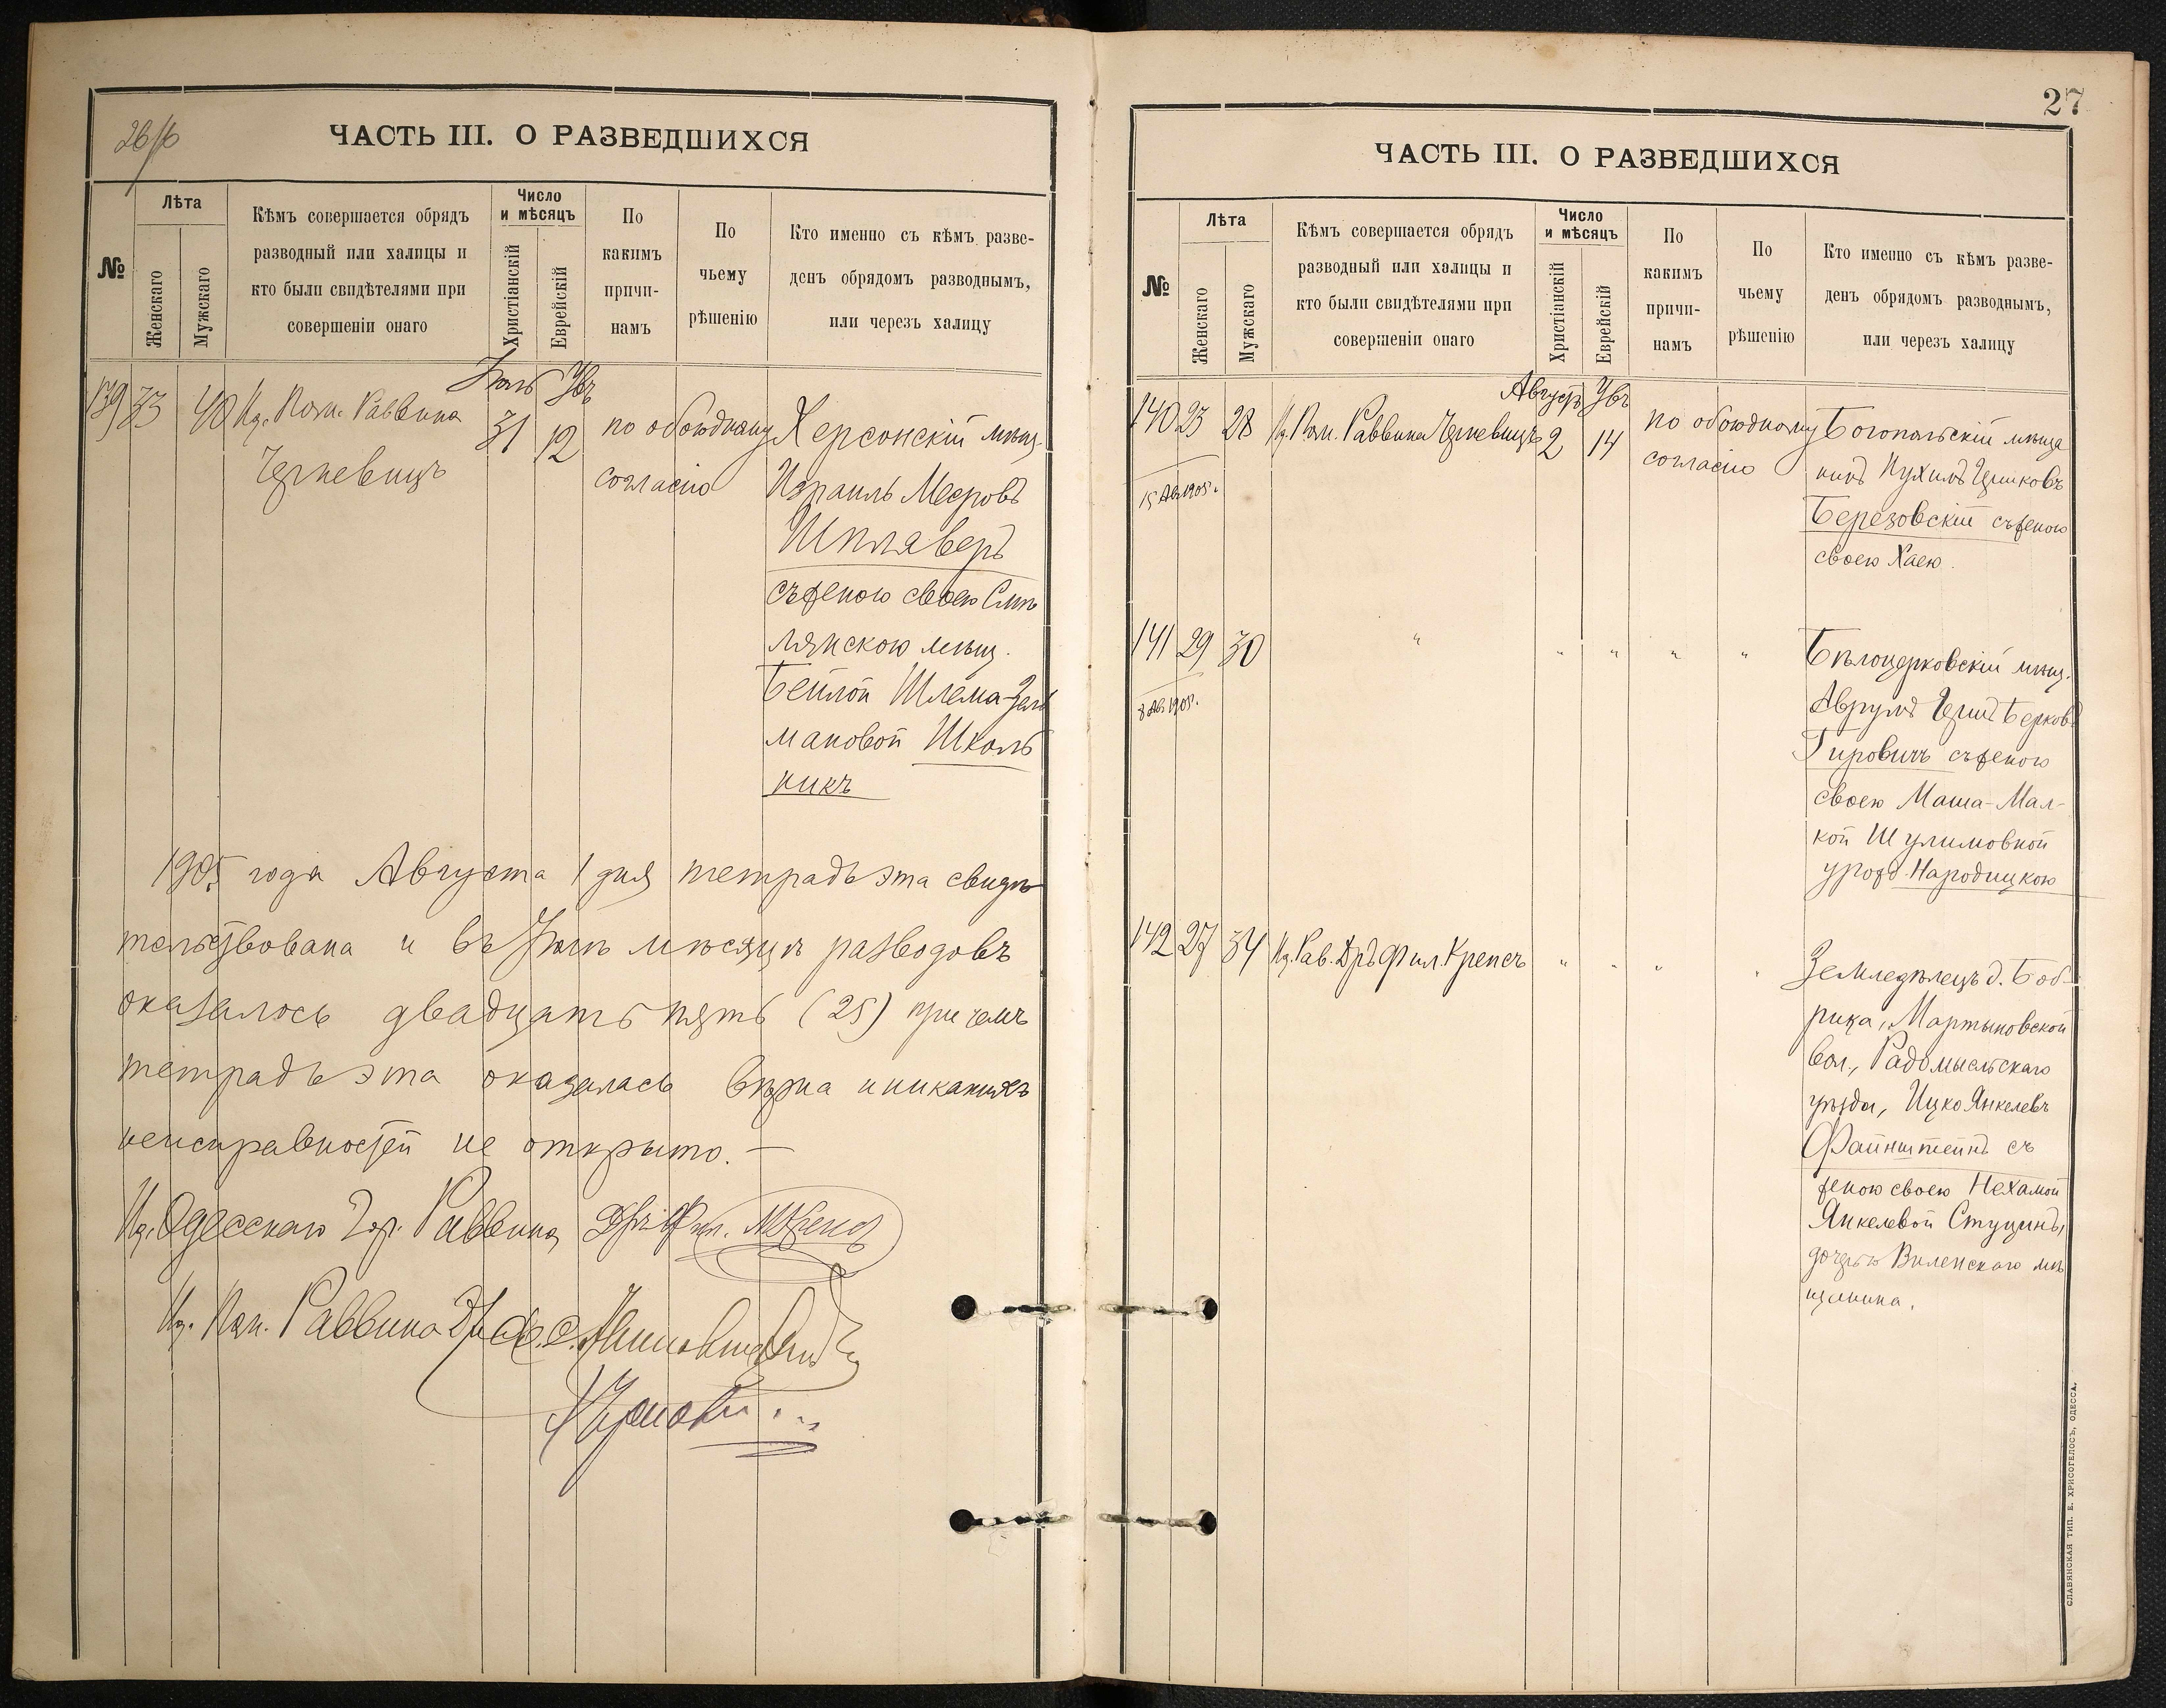 26/б
ЧАСТЬ III. О РАЗВЕДШИХСЯ
№
Лѣта
Женскаго
Мужскаго
Кѣмъ совершается обрядъ
разводный или халицы и
кто были свидѣтелями при
совершеніи онаго
Число
и мѣсяцъ
Христіанскій
Еврейскій
По
какимъ
причи-
намъ
По
чьему
рѣшенію
Кто именно съ кѣмъ разве-
денъ обрядомъ разводнымъ,
или черезъ халицу
Іюль
139 33 40 Ид. Пом. Раввина 31 12 по обоюдному Херсонскій мѣщ.
согласію Израиль Мееровъ
Шплаверъ
съ женою своею Смѣ
лянскою мѣщ.
Бейлой Шлема-Зель
мановой Школь
никъ
1905 года Августа 1 дня тетрадь эта свидѣ
тельствована и въ Іюлѣ мѣсяцѣ разводовъ
оказалось двадцать пять (25) при чемъ
тетрадь эта оказалась вѣрна и никакихъ
неисправностей не открыто. —
Ид. Одесскаго Гор. Раввина
Ид. Пом. Раввина
27
ЧАСТЬ III. О РАЗВЕДШИХСЯ
№
Лѣта
Женскаго
Мужскаго
Кѣмъ совершается обрядъ
разводный или халицы и
кто были свидѣтелями при
совершеніи онаго
Число
и мѣсяцъ
Христіанскій
Еврейскій
По
какимъ
причи-
намъ
По
чьему
рѣшенію
Кто именно съ кѣмъ разве-
денъ обрядомъ разводнымъ,
или черезъ халицу
Августъ
140 23 28 Ид. Пом. Раввина 2 14 по обоюдному Богопольскій мѣща
15 Ав. 1905 г. согласію нинъ
Березовскій съ женою
своею Хаею.
141 29 30 " " " " " Бѣлоцерковскій мѣщ.
8 Ав. 1905 г. Аврумъ Гершъ Берковъ
Гировичъ съ женою
своею Маша-Мал-
кой Шулимовной
урожд. Народицкою
142 27 34 Ид. Рав. Дръ Фил. Крепсъ " " " " Земледѣлецъ д. Боб-
рица, Мартыновской
вол., Радомысльскаго
уѣзда, Ицко Янкелевъ
Файнштейнъ съ
женою своею Нехамой
Янкелевой
дочерью Виленскаго мѣ
щанина.
СЛАВЯНСКАЯ ТИП. Е. ХРИСОГЕЛОСЪ, ОДЕССА.